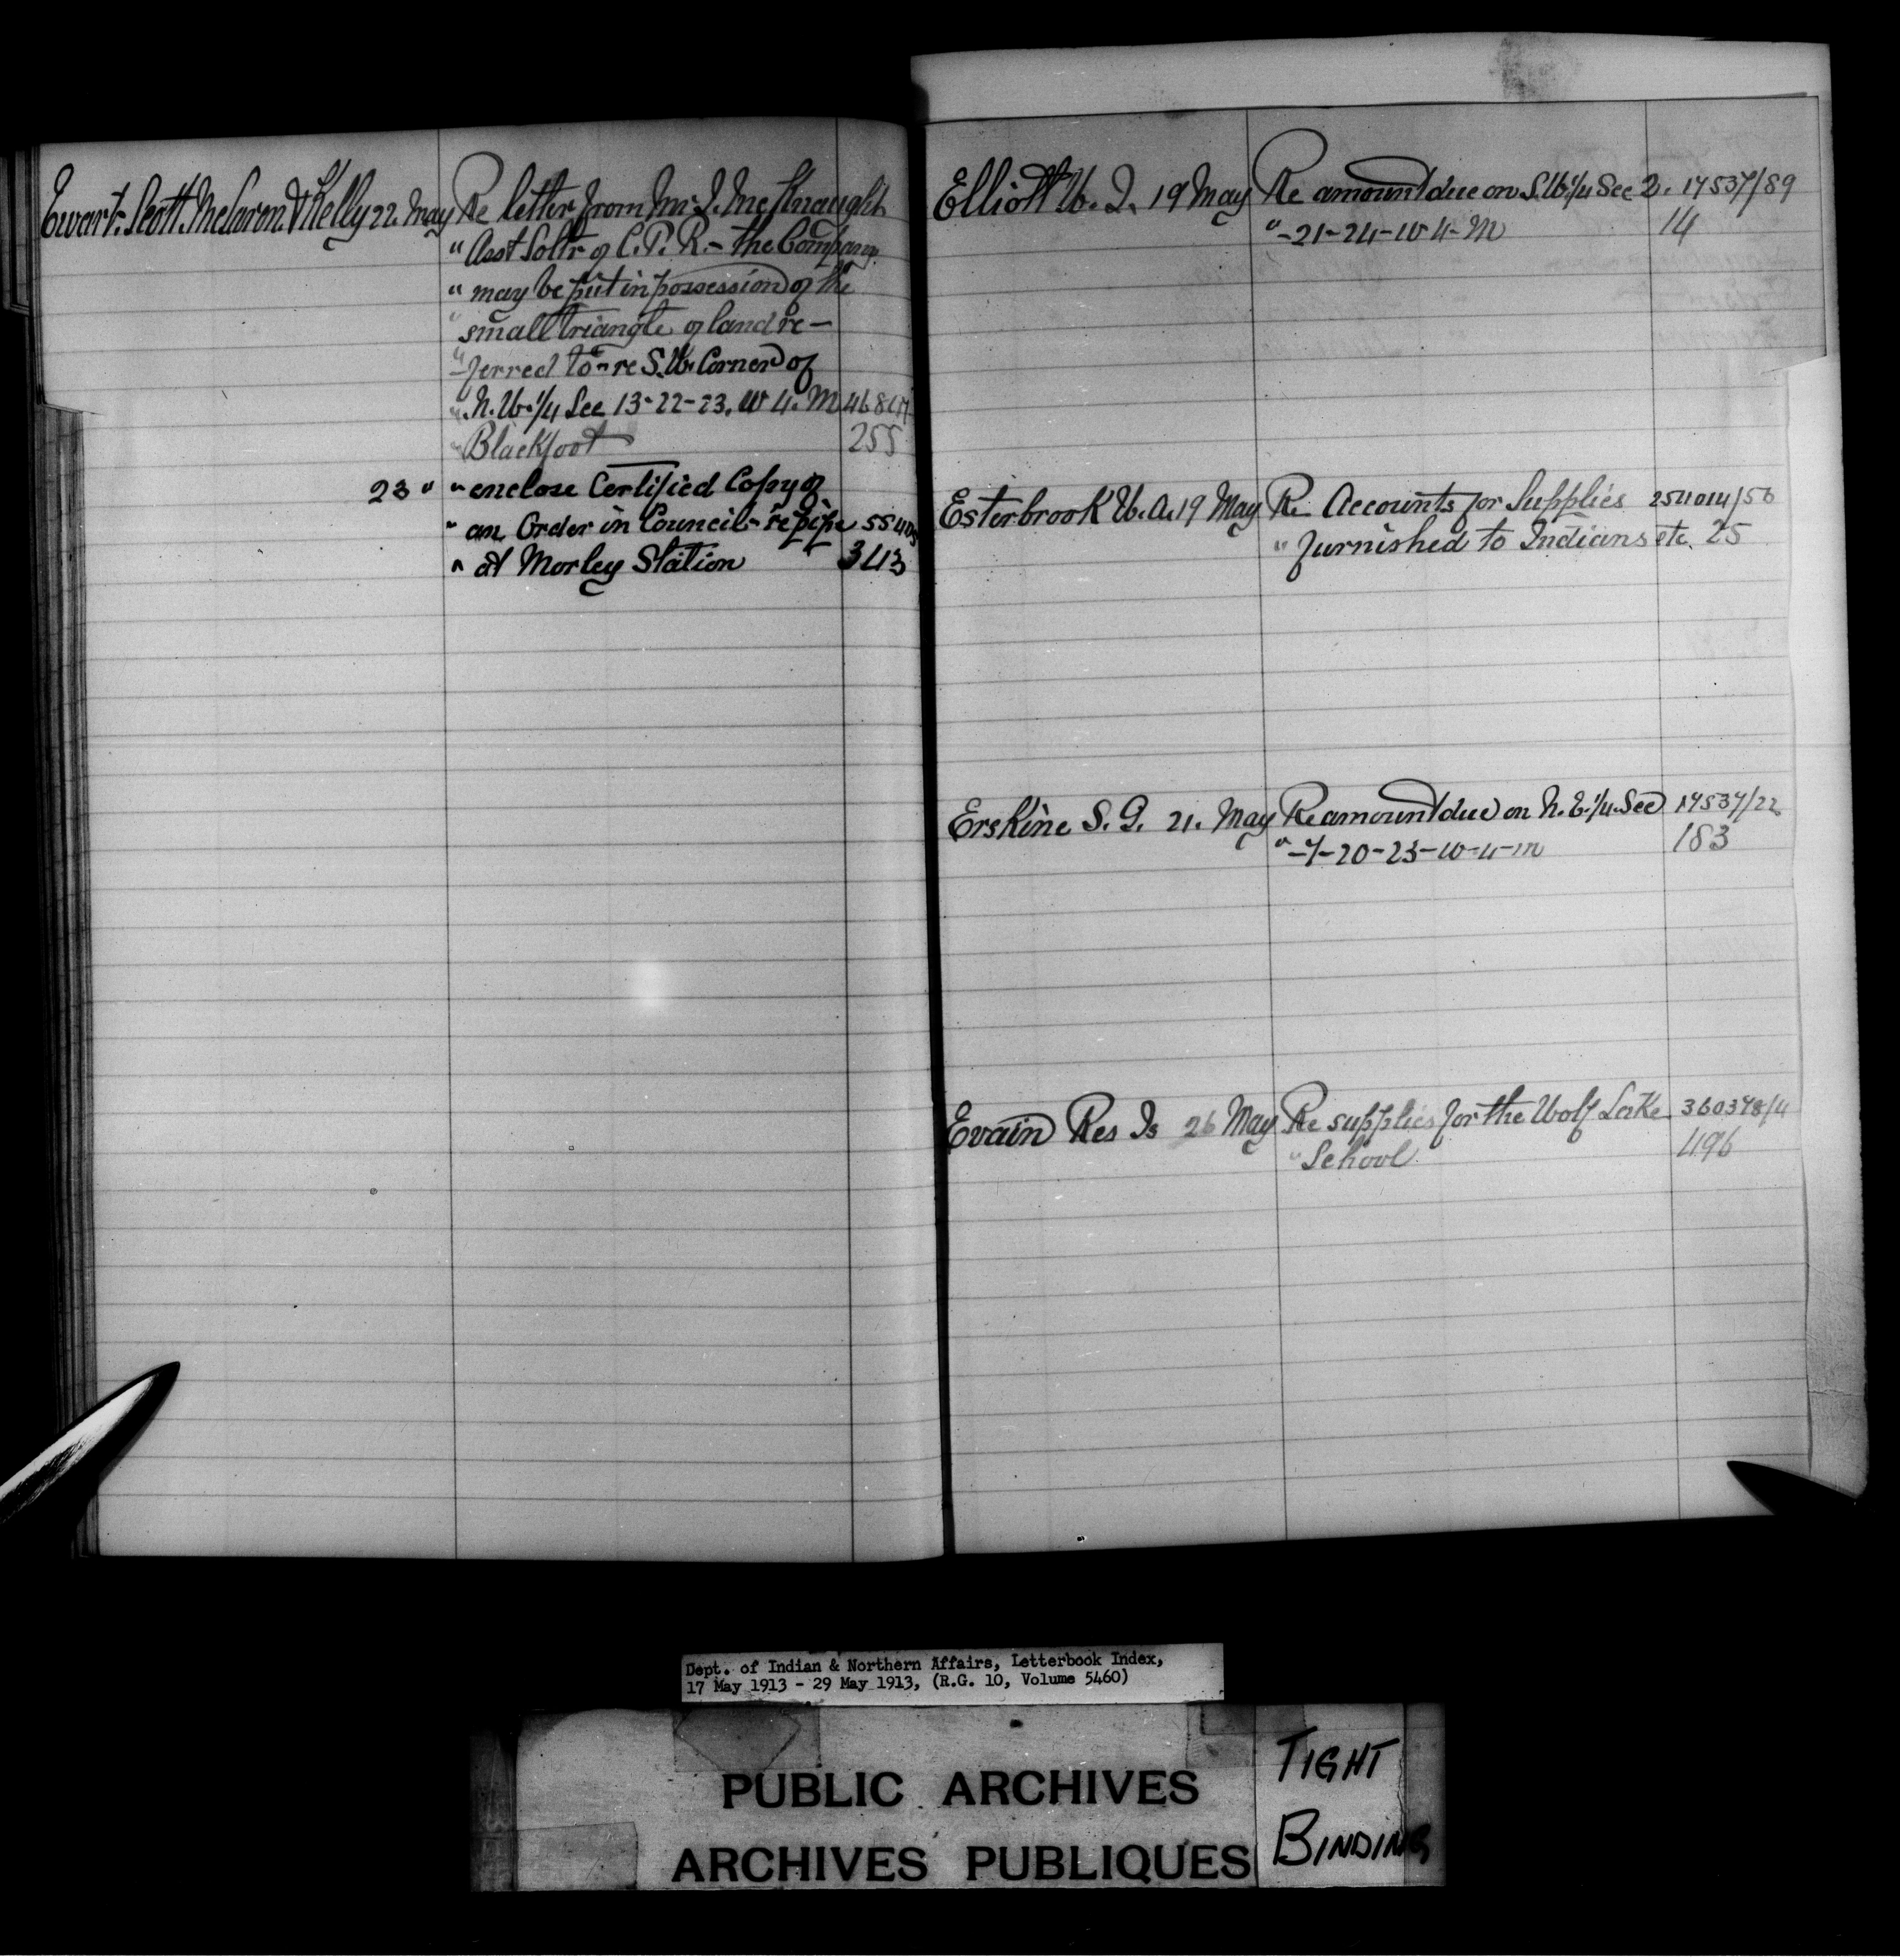 Ewart. Scott. McLaren. & Kelly 22. May Re letter from Mr. J. McKnaught
" Asst Soltr of C.P.R. - the Company
" may be put in possession of the
" small triangle of land re-
" ferred to - re S.W. Corner of
" N.W. 1/4 Sec 13-22-23. W 4. M
" Blackfoot 255
23 " " enclose Certified Copy of
" an Order in Council - re pipe
" at Morley Station 343
Elliott W. J. 19 May Re amount due on S.W. 1/4 Sec 2. 17537/89
" -21-24-W 4-M 14
Esterbrook W. A. 19 May Re Accounts for Supplies 254014/56
" furnished to Indians etc. 25
Erskine S. G. 21. May Re amount due on N.E. 1/4. Sec 17537/22
" -7-20-23-W-4-M 183
Evain Res Is 26 May Re supplies for the Wolf Lake 360378/4
" School 496
Dept. of Indian & Northern Affairs, Letterbook Index,
17 May 1913 - 29 May 1913, (R.G. 10, Volume 5460)
PUBLIC ARCHIVES
ARCHIVES PUBLIQUES
TIGHT
BINDING